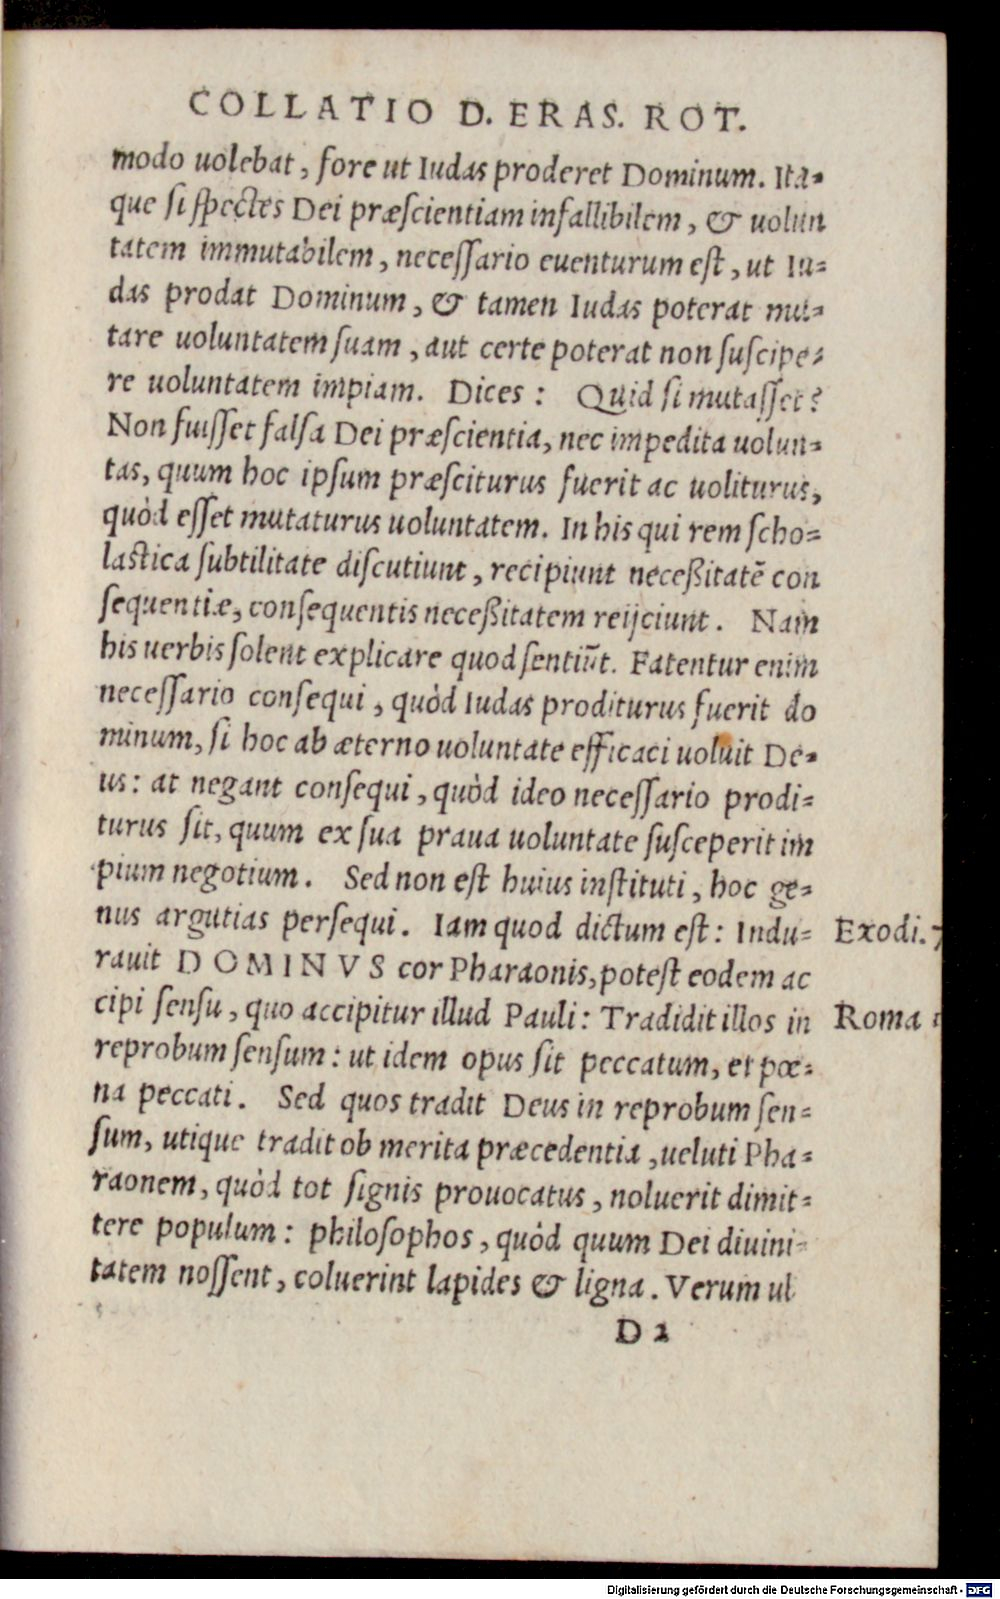 COLLATIO D. ERAS. ROT.
modo uolebat, fore ut Iudas proderet Dominum. Ita-
que si spectes Dei præscientiam infallibilem, & uolun
tatem immutabilem, necessario euenturum est, ut Iu-
das prodat Dominum, & tamen Iudas poterat mu-
tare uoluntatem suam, aut certe poterat non suscipe-
re uoluntatem impiam. Dices: Quid si mutasset?
Non fuisset falsa Dei præscientia, nec impedita uolun-
tas, quum hoc ipsum præsciturus fuerit ac uoliturus,
quòd esset mutaturus uoluntatem. In his qui rem scho-
lastica subtilitate discutiunt, recipiunt neceßitatē con
sequentiæ, consequentis neceßitatem reijciunt. Nam
his uerbis solent explicare quod sentiūt. Fatentur enim
necessario consequi, quòd Iudas proditurus fuerit do
minum, si hoc ab æterno uoluntate efficaci uoluit De-
us: at negant consequi, quòd ideo necessario prodi-
turus sit, quum ex sua praua uoluntate susceperit im
pium negotium. Sed non est huius instituti, hoc ge-
nus argutias persequi. Iam quod dictum est: Indu-
rauit DOMINVS cor Pharaonis, potest eodem ac
cipi sensu, quo accipitur illud Pauli: Tradidit illos in
reprobum sensum: ut idem opus sit peccatum, et pœ-
na peccati. Sed quos tradit Deus in reprobum sen-
sum, utique tradit ob merita præcedentia, ueluti Pha-
raonem, quòd tot signis prouocatus, noluerit dimit-
tere populum: philosophos, quòd quum Dei diuini-
tatem nossent, coluerint lapides & ligna. Verum ul
D 2
Exodi. 7
Roma
Digitalisierung gefördert durch die Deutsche Forschungsgemeinschaft - DFG